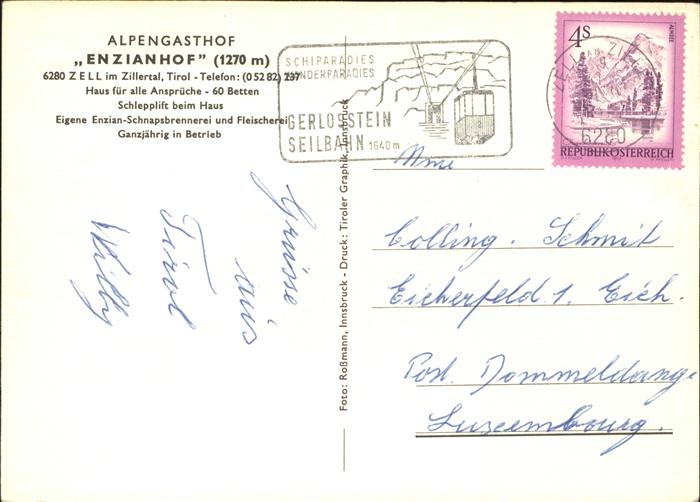 ALPENGASTHOF
„ENZIANHOF” (1270 m)
6280 ZELL im Zillertal, Tirol - Telefon: (05282) 237
Haus für alle Ansprüche - 60 Betten
Schlepplift beim Haus
Eigene Enzian-Schnapsbrennerei und Fleischerei
Ganzjährig in Betrieb
SCHIPARADIES
WANDERPARADIES
GERLOSSTEIN
SEILBAHN 1640 m
4S
ALMSEE
ZELL AM ZILLER
6280
REPUBLIK ÖSTERREICH
Grüsse
aus
Tirol
Willy
Foto: Roßmann, Innsbruck - Druck: Tiroler Graphik, Innsbruck
Mme
Colling. Schmit
Eicherfeld 1. Eich.
Post. Dommeldange
Luxembourg.